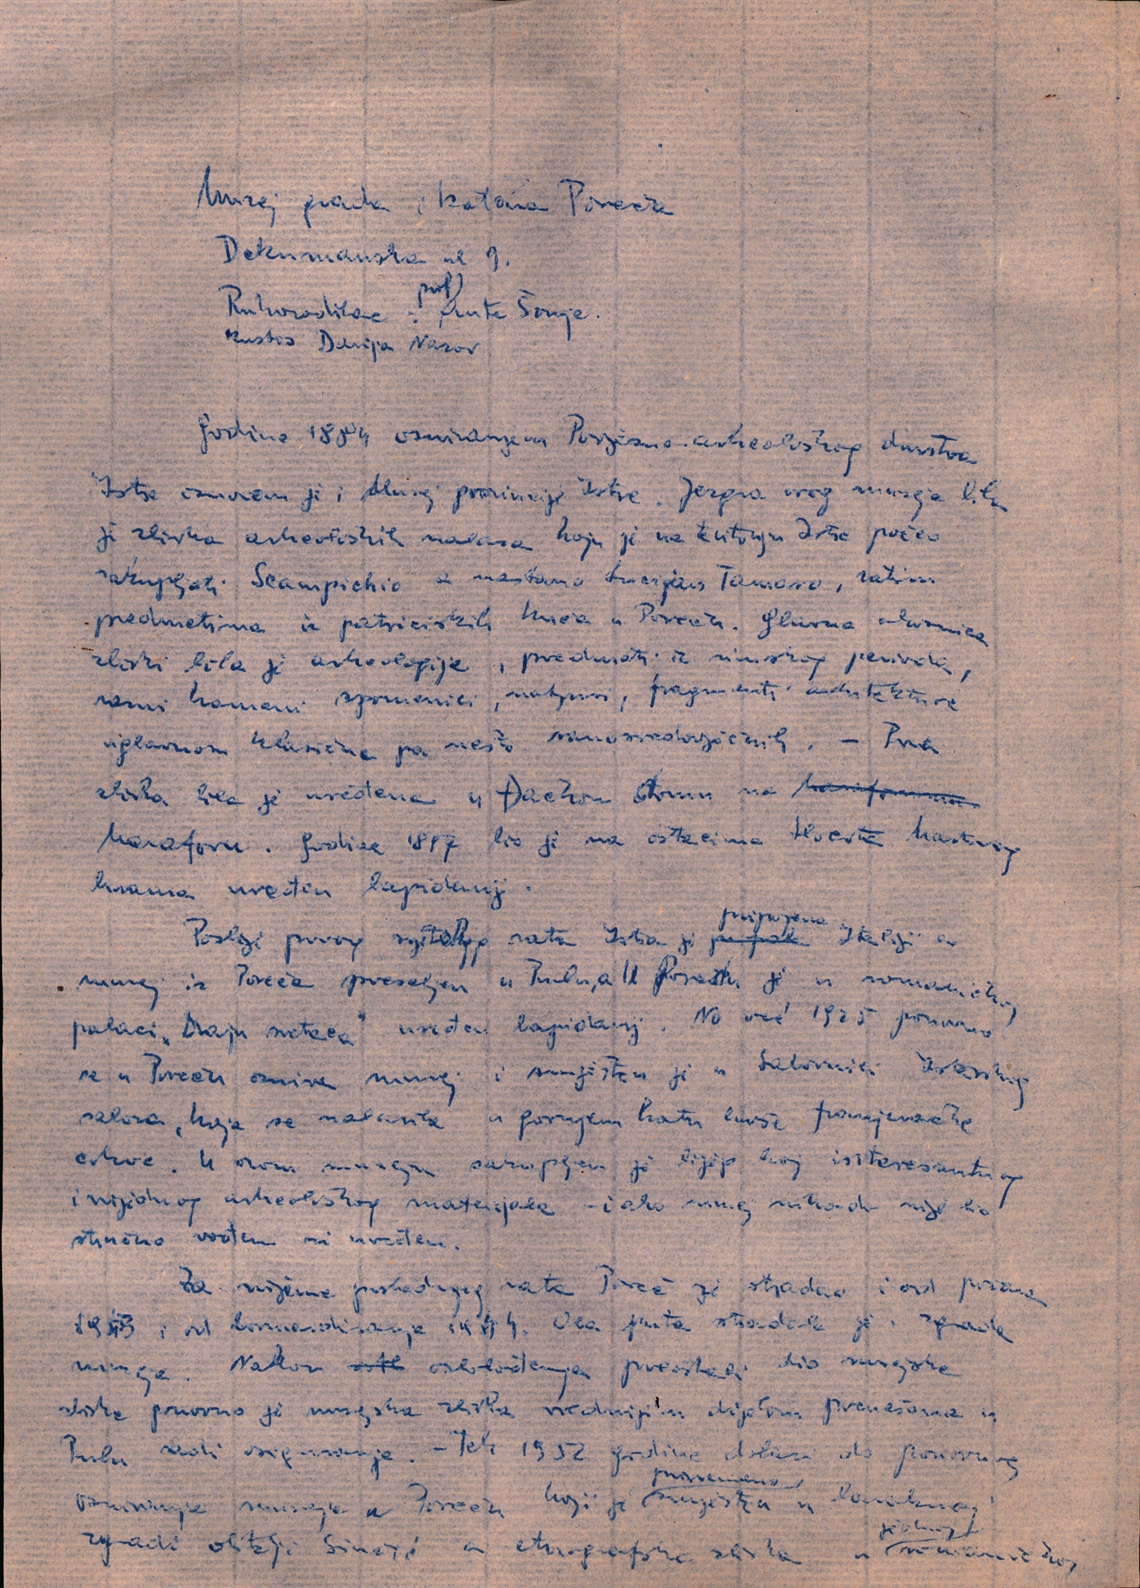 Muzej grada i kotara Poreča
Dekumanska ul 9.
Rukovodilac : prof Ante Šonje.
kustos Danija Nazor
Godine 1884 osnivanjem Povjesno-arheološkog društva
Istre osnovan je i Muzej provincije Istre. Jezgra ovog muzeja bila
je zbirka arheoloških nalaza koju je na teritoriju Istre počeo
sakupljati Scampichio a nastavio Lucijan Tamaro, zatim
predmetima iz patricijskih kuća u Poreču. Glavna okosnica
zbirki bila je arheologija, predmeti iz rimskog perioda,
razni kameni spomenici, natpisi, fragmenti arhitekture
uglavnom klasične pa nešto ranosrednjovječnih. – Prva
zbirka bila je uređena u Đačkom domu na
Marafora. Godine 1897 bio je na ostacima Marsovog
hrama uređen lapidarij.
Poslije prvog svjetskog rata Istra je pripojena Italiji a
muzej iz Poreča preseljen u Pulu, a u Poreču je u romaničkoj
palači „Dvaju svetaca" uređen lapidarij. No već 1925 ponovno
se u Poreču osniva muzej i smješten je u Sabornici Istarskog
sabora, koja se nalazila u gornjem katu bivše franjevačke
crkve. U ovom muzeju sakupljen je lijep broj interesantnog
i vrijednog arheološkog materijala – iako muzej nikada nije bio
stručno vođen ni uređen.
Za vrijeme posljednjeg rata Poreč je stradao i od požara
1943 i od bombardiranja 1944. Oba puta stradala je i zgrada
muzeja. Nakon oslobođenja preostali dio muzejske
zbirke ponovno je muzejska zbirka vrednijim dijelom prenešena u
Pulu radi osiguranja. – Tek 1952 godine dolazi do ponovnog
osnivanja muzeja u Poreču koji je privremeno smješten u baroknoj
zgradi obitelji Sinčić a etnografska zbirka u jednoj romaničkoj